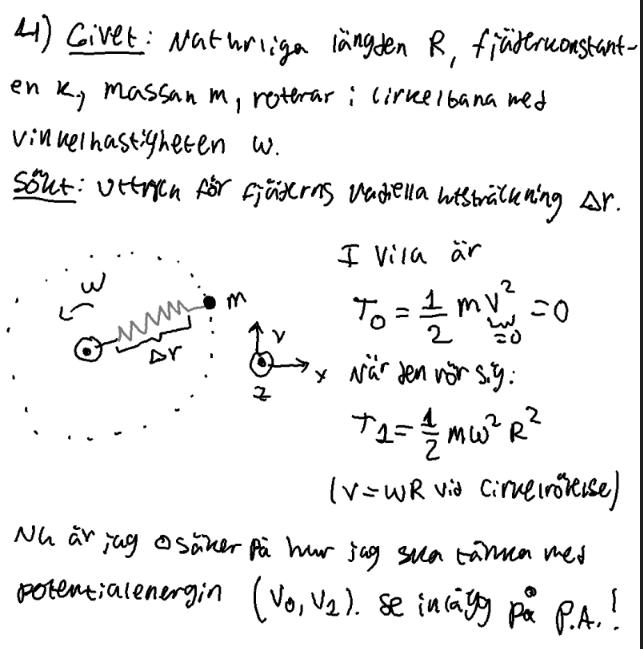 4) Givet: Naturliga längden R, fjäderkonstant-
en k, massan m, roterar i cirkelbana med
vinkelhastigheten ω.
Sökt: Uttryck för fjäderns radiella utsträckning Δr.
I vila är
T₀ = 1/2 mv² = 0
=0
ω
m
Δr
y
x
z
När den rör sig:
T₁ = 1/2 mω²R²
(v = ωR vid cirkelrörelse)
Nu är jag osäker på hur jag ska tänka med
potentialenergin (V₀, V₁). Se inlägg på P.A.!